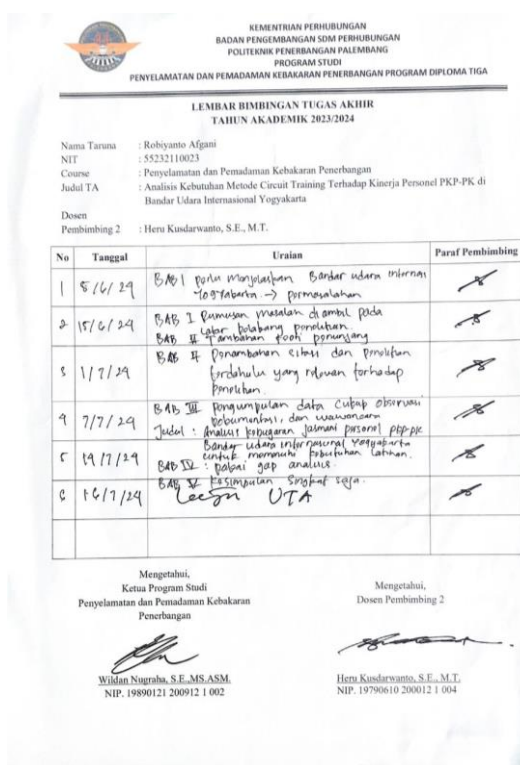 KEMENTRIAN PERHUBUNGAN
BADAN PENGEMBANGAN SDM PERHUBUNGAN
POLITEKNIK PENERBANGAN PALEMBANG
PROGRAM STUDI
PENYELAMATAN DAN PEMADAMAN KEBAKARAN PENERBANGAN PROGRAM DIPLOMA TIGA
LEMBAR BIMBINGAN TUGAS AKHIR
TAHUN AKADEMIK 2023/2024
Nama Taruna : Robiyanto Afgani
NIT : 55232110023
Course : Penyelamatan dan Pemadaman Kebakaran Penerbangan
Judul TA : Analisis Kebutuhan Metode Circuit Training Terhadap Kinerja Personel PKP-PK di
Bandar Udara Internasional Yogyakarta
Dosen
Pembimbing 2 : Heru Kusdarwanto, S.E., M.T.
No Tanggal Uraian Paraf Pembimbing
1 5/6/24 BAB I perlu menjelaskan Bandar udara
Yogyakarta. → permasalahan
2 15/6/24 BAB I Rumusan masalah di ambil pada
latar belakang penelitian.
BAB II Tambahan teori penunjang
3 1/7/24 BAB II Penambahan sitasi dan penelitian
terdahulu yang relevan terhadap
penelitian.
4 7/7/24 BAB III pengumpulan data cukup observasi
dokumentasi, dan wawancara
Judul : Analisis kebugaran jasmani personel pkp-pk
Bandar udara internasional Yogyakarta
5 14/7/24 untuk memenuhi kebutuhan latihan.
BAB IV : pakai gap analisis.
BAB V kesimpulan singkat saja.
6 16/7/24 UTA
Mengetahui,
Ketua Program Studi
Penyelamatan dan Pemadaman Kebakaran
Penerbangan
Wildan Nugraha, S.E.,MS.ASM.
NIP. 19890121 200912 1 002
Mengetahui,
Dosen Pembimbing 2
Heru Kusdarwanto, S.E., M.T.
NIP. 19790610 200012 1 004